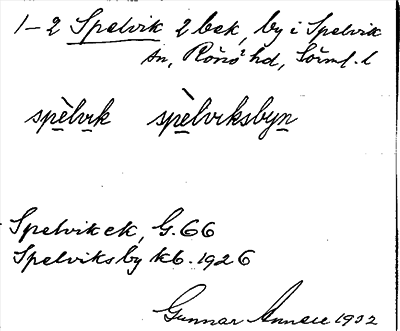 1-2 Spelvik 2 bek, by i Spelvik
sn, Rönö hd, Sörml. l
spèlvik spèlviksbyn
Spelvik ek, G. 66
Spelviksby kb. 1926
Gunnar 1932